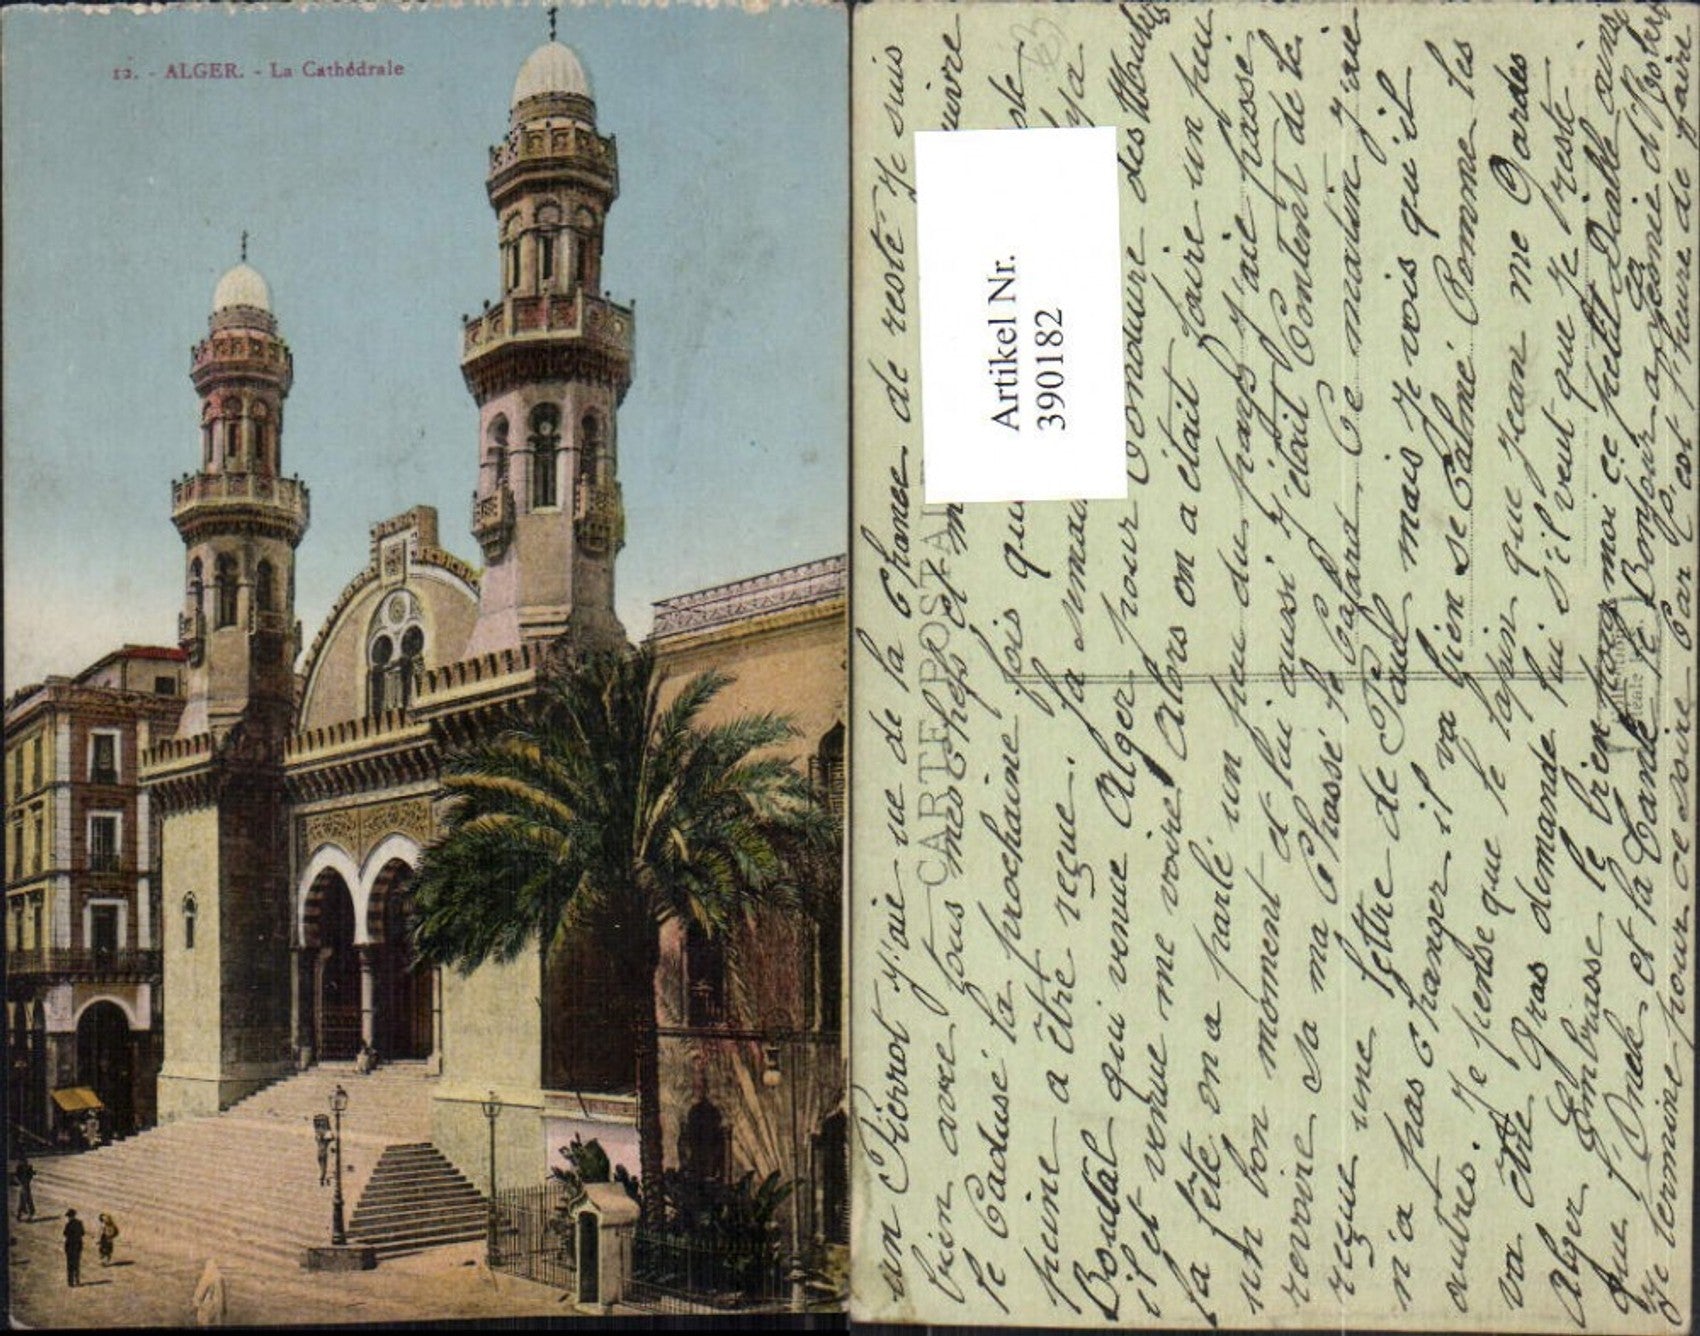 12. - ALGER. - La Cathédrale
Artikel Nr.
390182
CARTE POSTAL
un Pierrot j'aie ue de la Chance de reste je suis
bien avec tous mes Chefs et
le Caduse la prochaine fois que
peine a être reçue. la semai
Boudal qui venue Alger pour Conduire des
il et venue me voire Alors on a était faire un peu
la fête on a parlé un peu du pays j'aie passé
un bon moment et lui aussi j'était Content de le
revoire sa ma Chassé le Cafard Ce matin j'aie
reçue une lettre de Paul mais je vois qu'il
n'a pas changer il va bien se Calmé Comme les
autres. Je pense que le lapin que Jean me Gardes
va être gras demande lui s'il veut que je reste
Alger Embrasse le bien pour moi ce petit Diable ainsi
que l'Onck et la Tante le Bonjour a
je termine pour ce soire Car c'est l'heure de faire